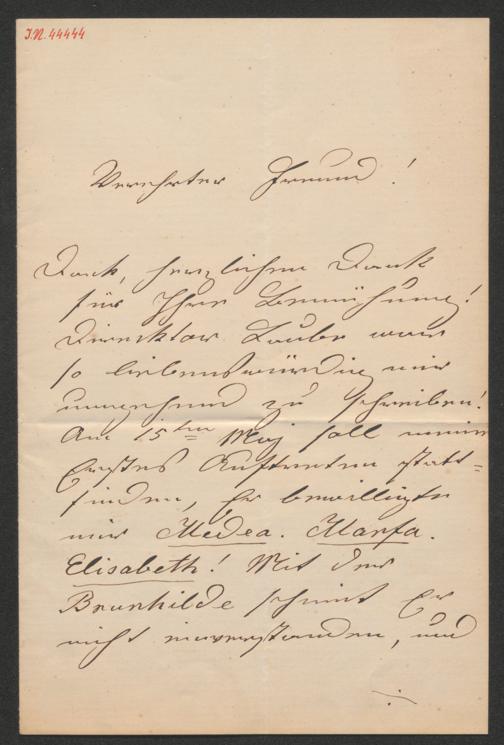 J.N. 44444
Verehrter Freund!
Dank, herzlichen Dank
für Ihre Bemühung!
Direktor Laube war
so liebenswürdig mir
umgehend zu schreiben!
Am 15ten Maj soll mein
Erstes Auftreten statt=
finden, Er bewilligte
mir Medea. Marfa.
Elisabeth! Mit der
Brunhilde scheint Er
nicht einverstanden, und